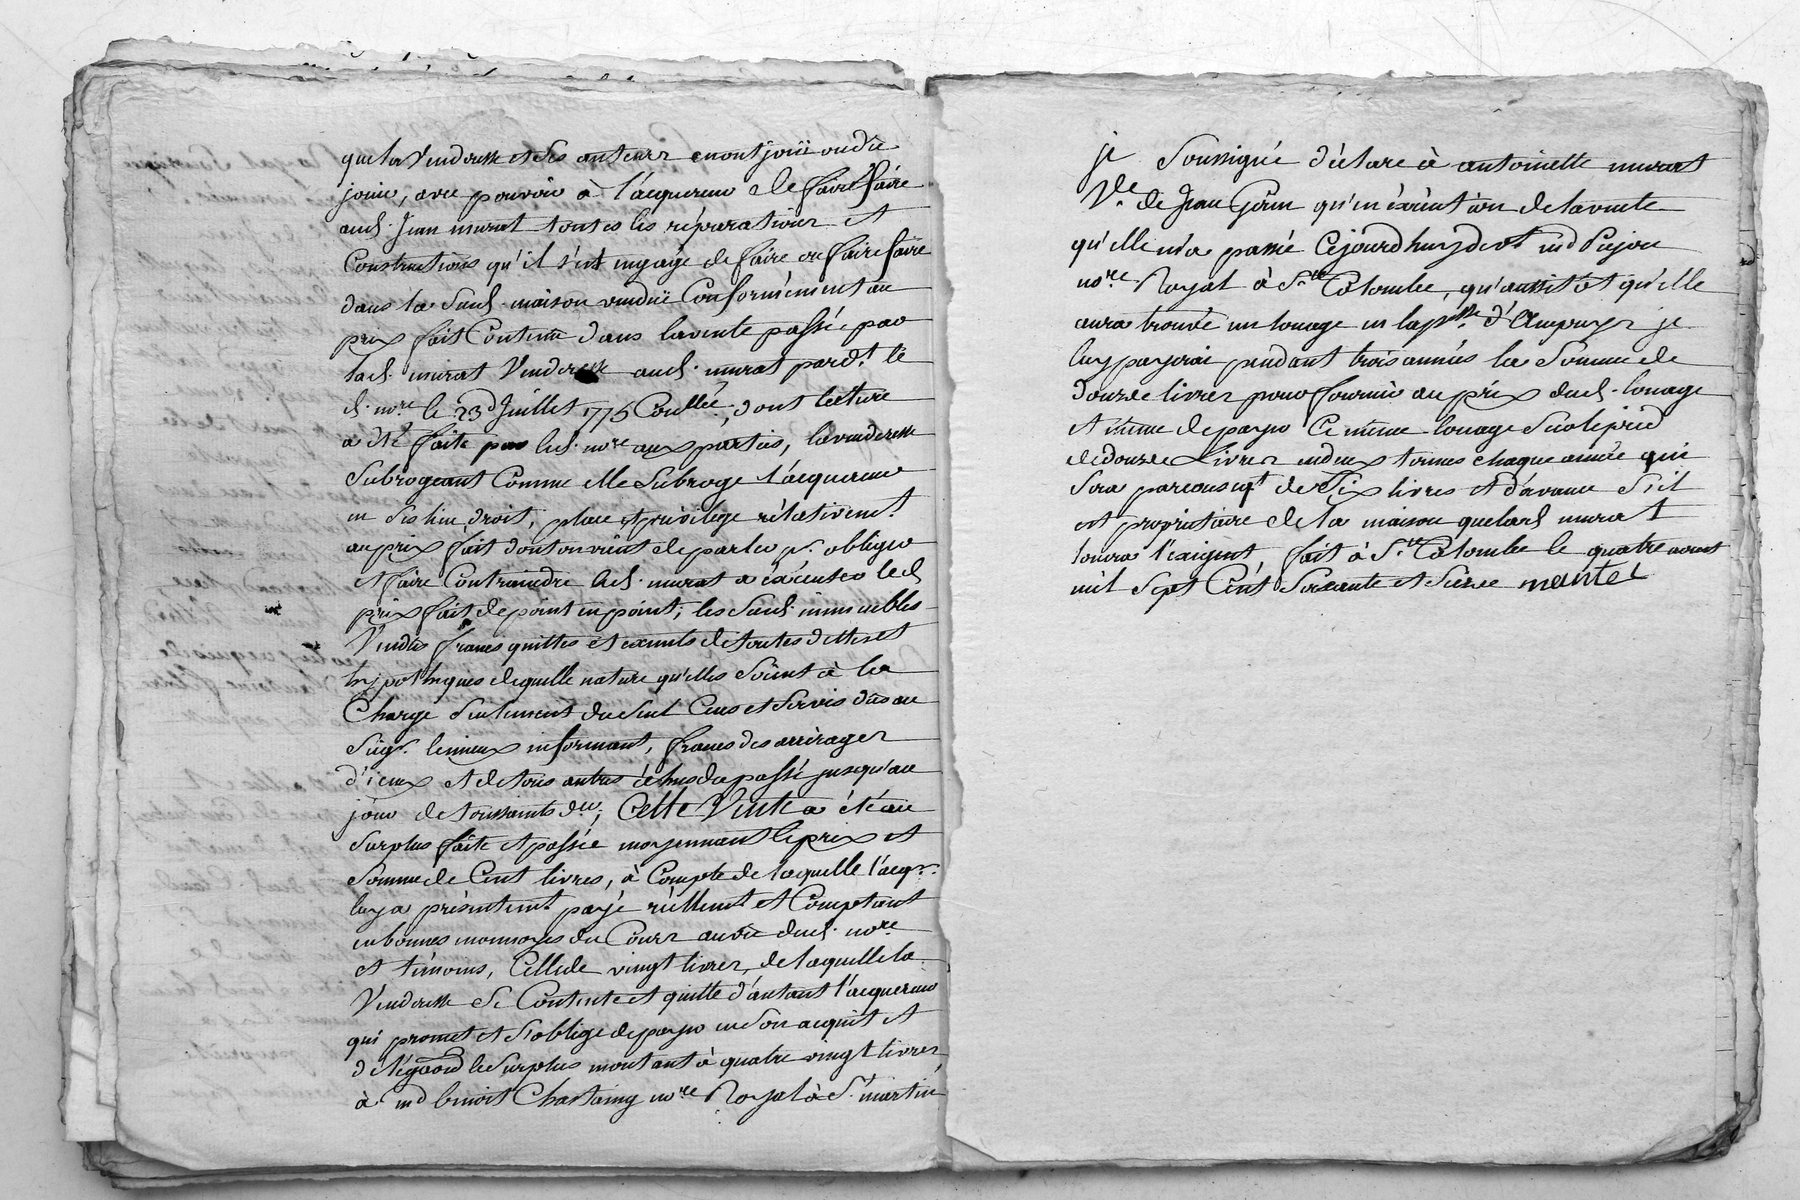 que la Venderesse et Ses auteurs en ont joüi ou dû
jouir, avec pouvoir à l'acquereur de faire faire
aud. Jean murat toutes les réparations et
Constructions qu'il s'est engagé de faire ou faire faire
dans la Susd. maison venduë Conformément au
prix fait Contenu dans la vente passée par
lad. murat Venderesse aud. murat pard.t le
d. no.re le 23 Juillet 1775 Coullée, dont lecture
a été faite par led. no.re aux parties, la venderesse
Subrogeant Comme elle Subroge l'acquereur
en Ses lieu, droit, place et privilege rélativem.t
au prix fait dont on vient de parler p.r obliger
et faire Contraindre led. murat a éxécuter led
prix fait de point en point; les Susd. immeubles
Vendus francs quittes et exempts de toutes dettes et
hypothéques de quelle nature qu'elles Soient à la
Charge Seulement du Seul Cens et Servis dûs au
Seig.r le mieux informant, francs des arrérages
d'iceux et de tous autres échus du passé jusqu'au
jour de toussaints d.er, Cette Vente a été au
Surplus faite et passée moyennant le prix et
Somme de Cent livres, à Compte de laquelle l'acq.r
luy a présentem.t payé réellem.t et Comptant
en bonnes monnoyes du Cours au vû dud. no.re
et témoins, Celle de vingt livres, de laquelle la
Venderesse Se Contente et quitte d'autant l'acquereur
qui promet et S'oblige de payer en Son acquit et
à l'égard le Surplus montant à quatre vingt livres
à md benoit Chastaing no.re Royal à S.t martin
je Soussigné déclare à antoinette murat
V.e de Jean Gouin qu'en éxécution de la vente
qu'elle m'a passée Cejourd'huy dev.t md Pujou
no.re Royal à S.te Colombe, qu'aussitôt qu'elle
aura trouvé un louage en la p.sse d'Ampuys je
luy payerai pendant trois années la Somme de
douze livres pour fournir au prix dud. louage
et même de payer Ce même louage Sur le pied
de douze Livres en deux termes chaque année qui
Sera par conseq.t de Six livres et d'avance S'il
est propriétaire de la maison que lad murat
louera l'éxigent, fait à S.te Colombe le quatre aoust
mil Sept Cent Soixante et Seize mantel